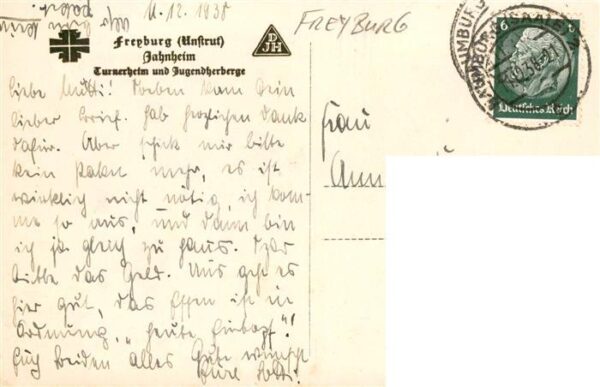 11.12.1938
FREYBURG
Freyburg (Unstrut)
Jahnheim
Turnerheim und Jugendherberge
DJH
6
Deutsches Reich
Liebe Mutti! Soeben kam Dein
lieber Brief. Hab herzlichen Dank
dafür. Aber schick mir bitte
kein Paket mehr, es ist
wirklich nicht nötig, ich kom-
me so aus, und dann bin
ich ja gleich zu Haus.
bitte das Geld. Uns geht es
hier gut, das Essen ist in
Ordnung, "heute Eintopf"!
Euch beiden alles Gute wünscht
Eure
Frau